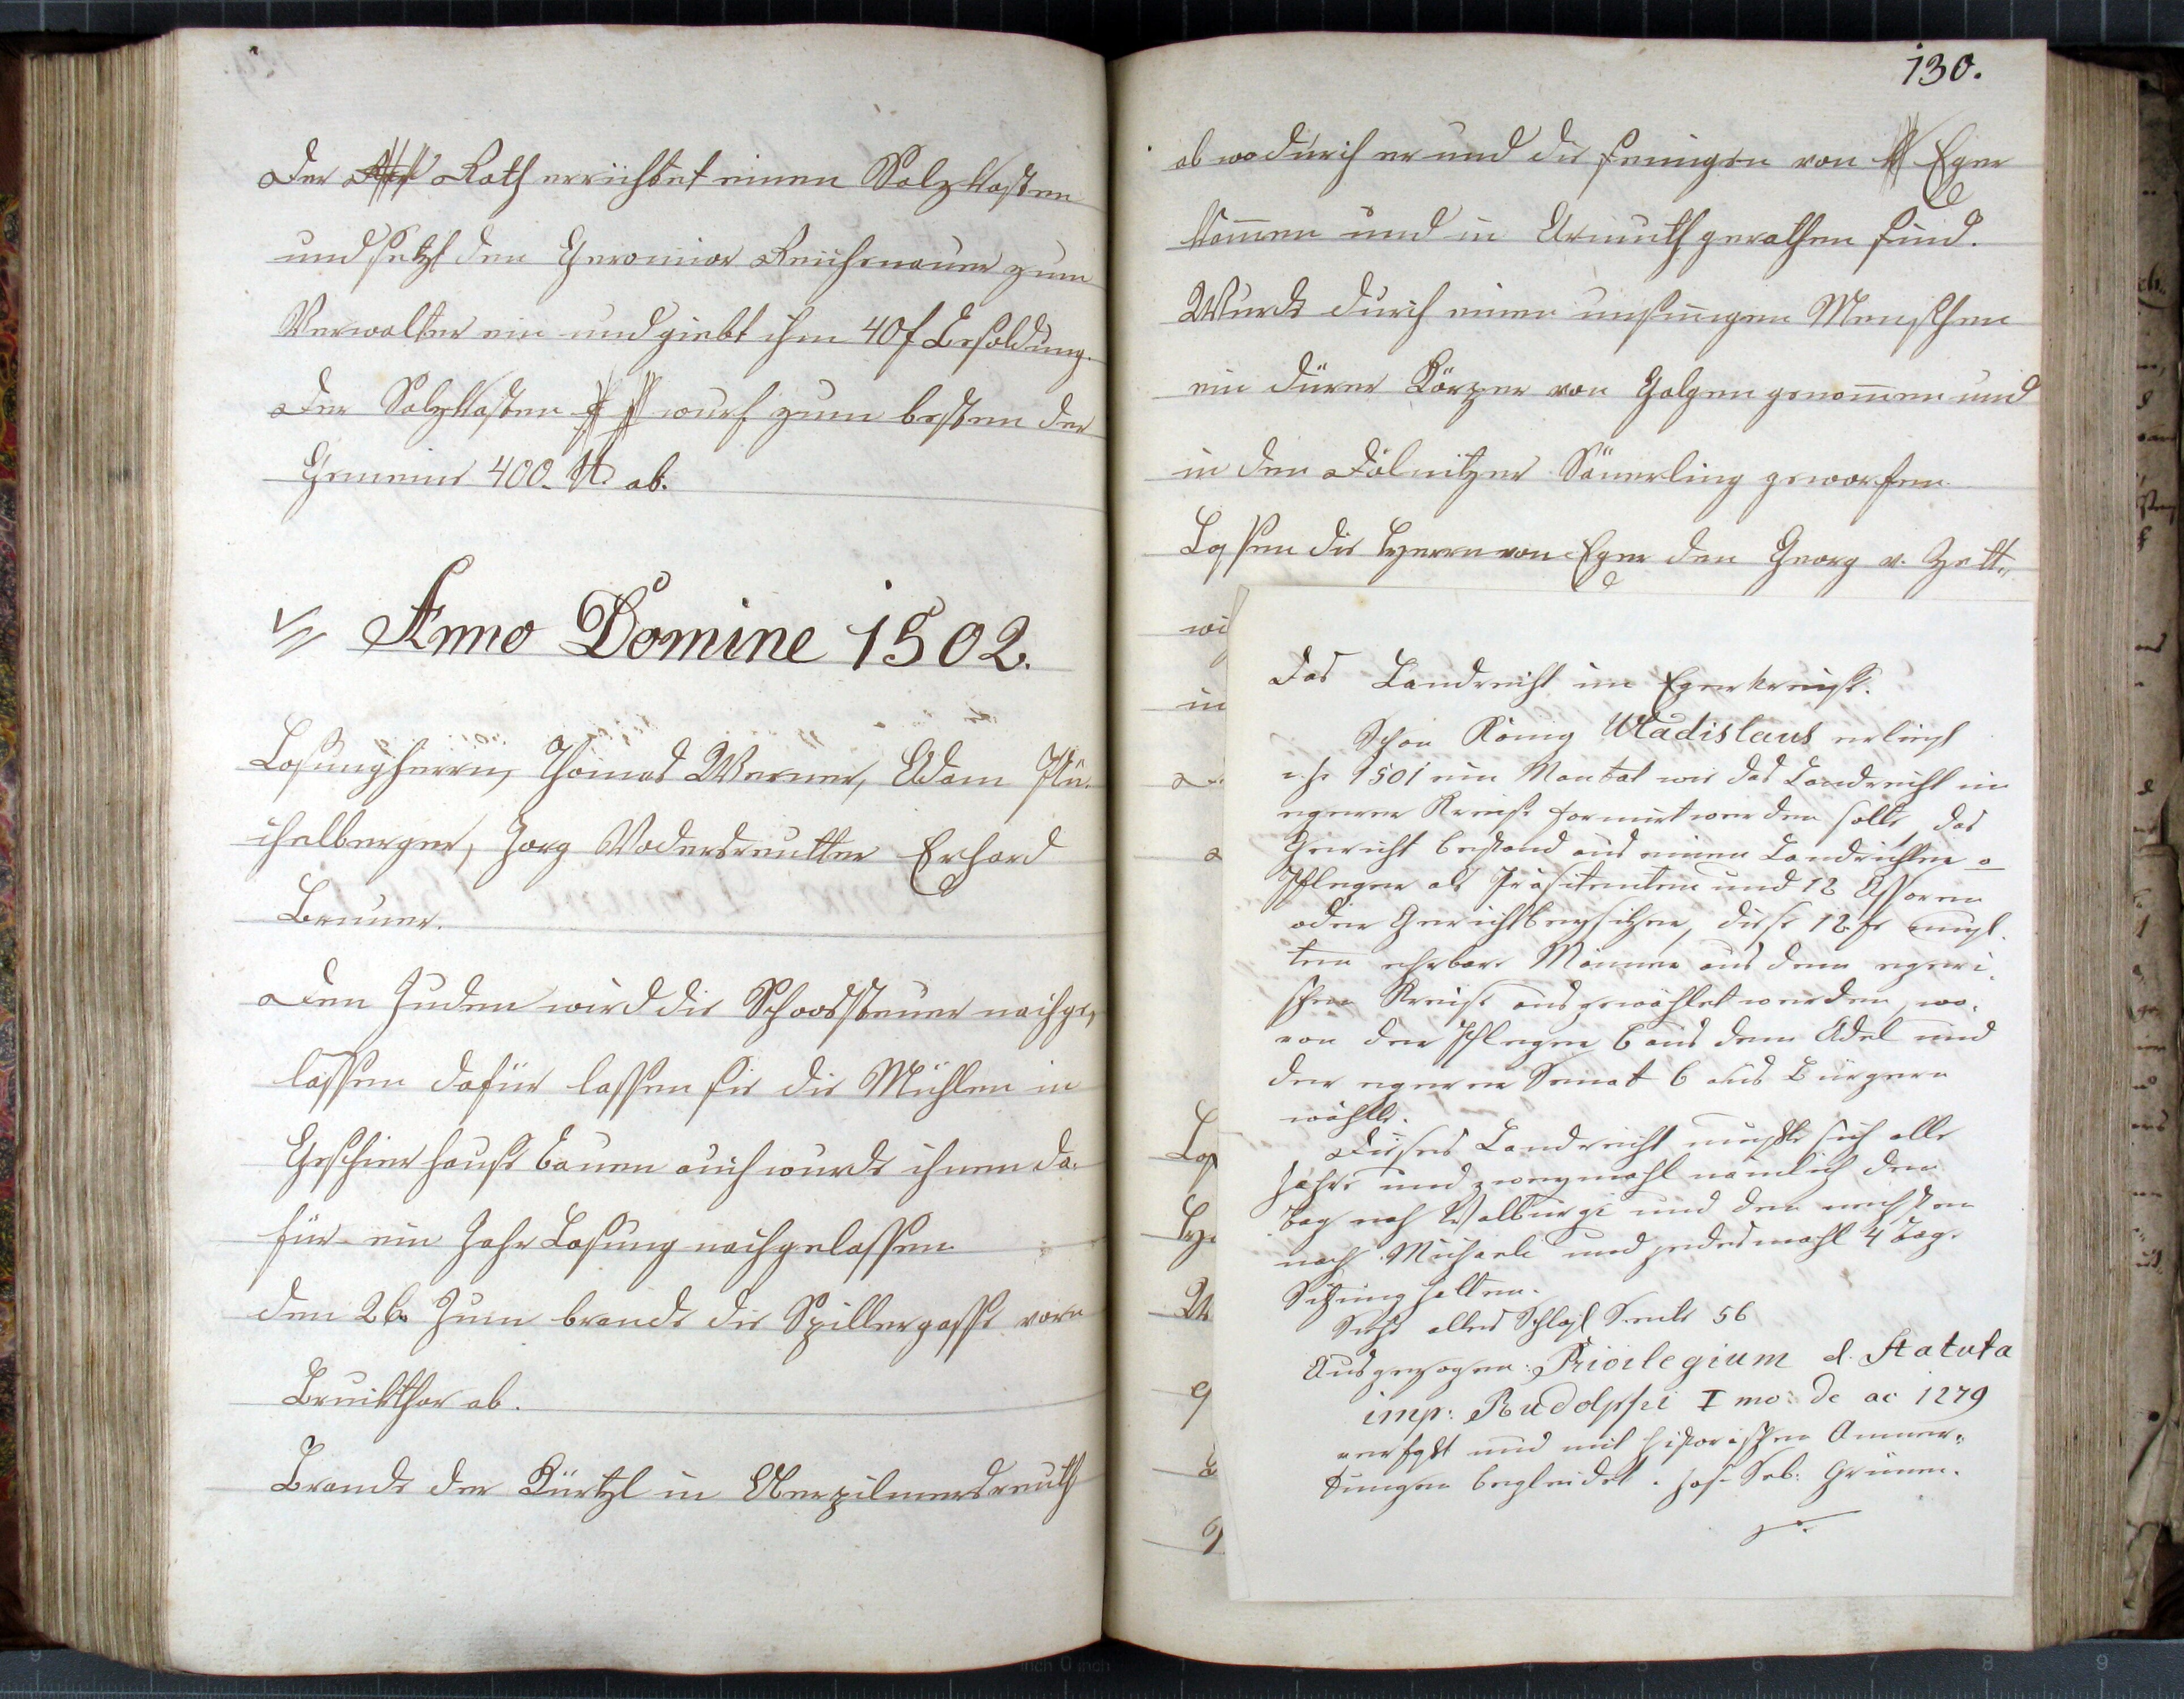 Der Rath errichtet einen Salzkasten
und setzt den Geronimos Reichenauer zum
Verwalter ein und giebt ihm 40 f Besoldung.
Der Salzkasten wurf zum besten der
Gemeine 400 ab.
Anno Domine 1502.
Losungherrn, Thomas Werner, Adam
chelberger, Jorg Vodersreutter Erhard
Bruner.
Den Juden wird die Schoossteuer nachge,
lassen dafür lassen sie die Mühlen in
Geschier hause bauen auch wurde ihnen da¬
für ein Jahr Losung nachgelassen
den 26. Juni brande die Spillergasse vorn
Bruckthor ab.
Brande der Kürtzl in Oberpilmersreuth
130.
ab wodurch er und die seinigen von Eger
kom̄en und in Armuth gerathen sind.
Wurde durch einen unsinigen Menschen
ein dürer Körper von Galgen genom̄en und
in den Dölnitzer Säuerling geworfen.
Lassen die Herrn von Eger den Georg v. Zett,,
wi
in
Das Landrecht im Egerkreise.
Schon König Uladislaus erliest
1501 ein Mantat wie das Landrecht im
egerer Kreise formirt werden solle, das
Gericht bestand aus einem Landrichter o
Pfleger als Präsitenten und 12 Assoren
oder Gerichtbeysitzer, diese 12 muss¬
ten ehrbare Männer aus dem egeri¬
schen Kreise ausgewählet werden, wo¬
von der Pfleger 6 aus dem Adel und
der egerer Senat 6 aus Bürgern
wählte.
Dieses Landrecht musste sich alle
Jahre und zweymahl nämlich den
Tag nach Walburgi und den nechsten
nach Michaeli und jedesmahl 4 Tage
Sitzung halten.
Siehe altes Schlossl Seite 56
Ausgezogen: Privilegium et Statuta
imp: Rudolphi I mo: de ao 1279
verfast und mit historischen Anmer¬
kungen begleidet. Jos. Seb: Grüner.